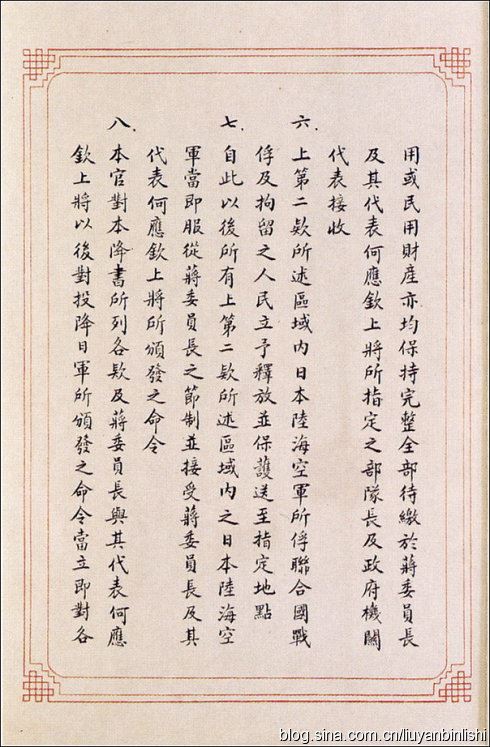 用或民用財產亦均保持完整全部待繳於蔣委員長
及其代表何應欽上將所指定之部隊長及政府機關
代表接收
六.上第二欵所述區域內日本陸海空軍所俘聯合國戰
俘及拘留之人民立予釋放並保護送至指定地點
七.自此以後所有上第二欵所述區域內之日本陸海空
軍當即服從蔣委員長之節制並接受蔣委員長及其
代表何應欽上將所頒發之命令
八.本官對本降書所列各欵及蔣委員長與其代表何應
欽上將以後對投降日軍所頒發之命令當立即對各
blog.sina.com.cn/liuyanbinlishi